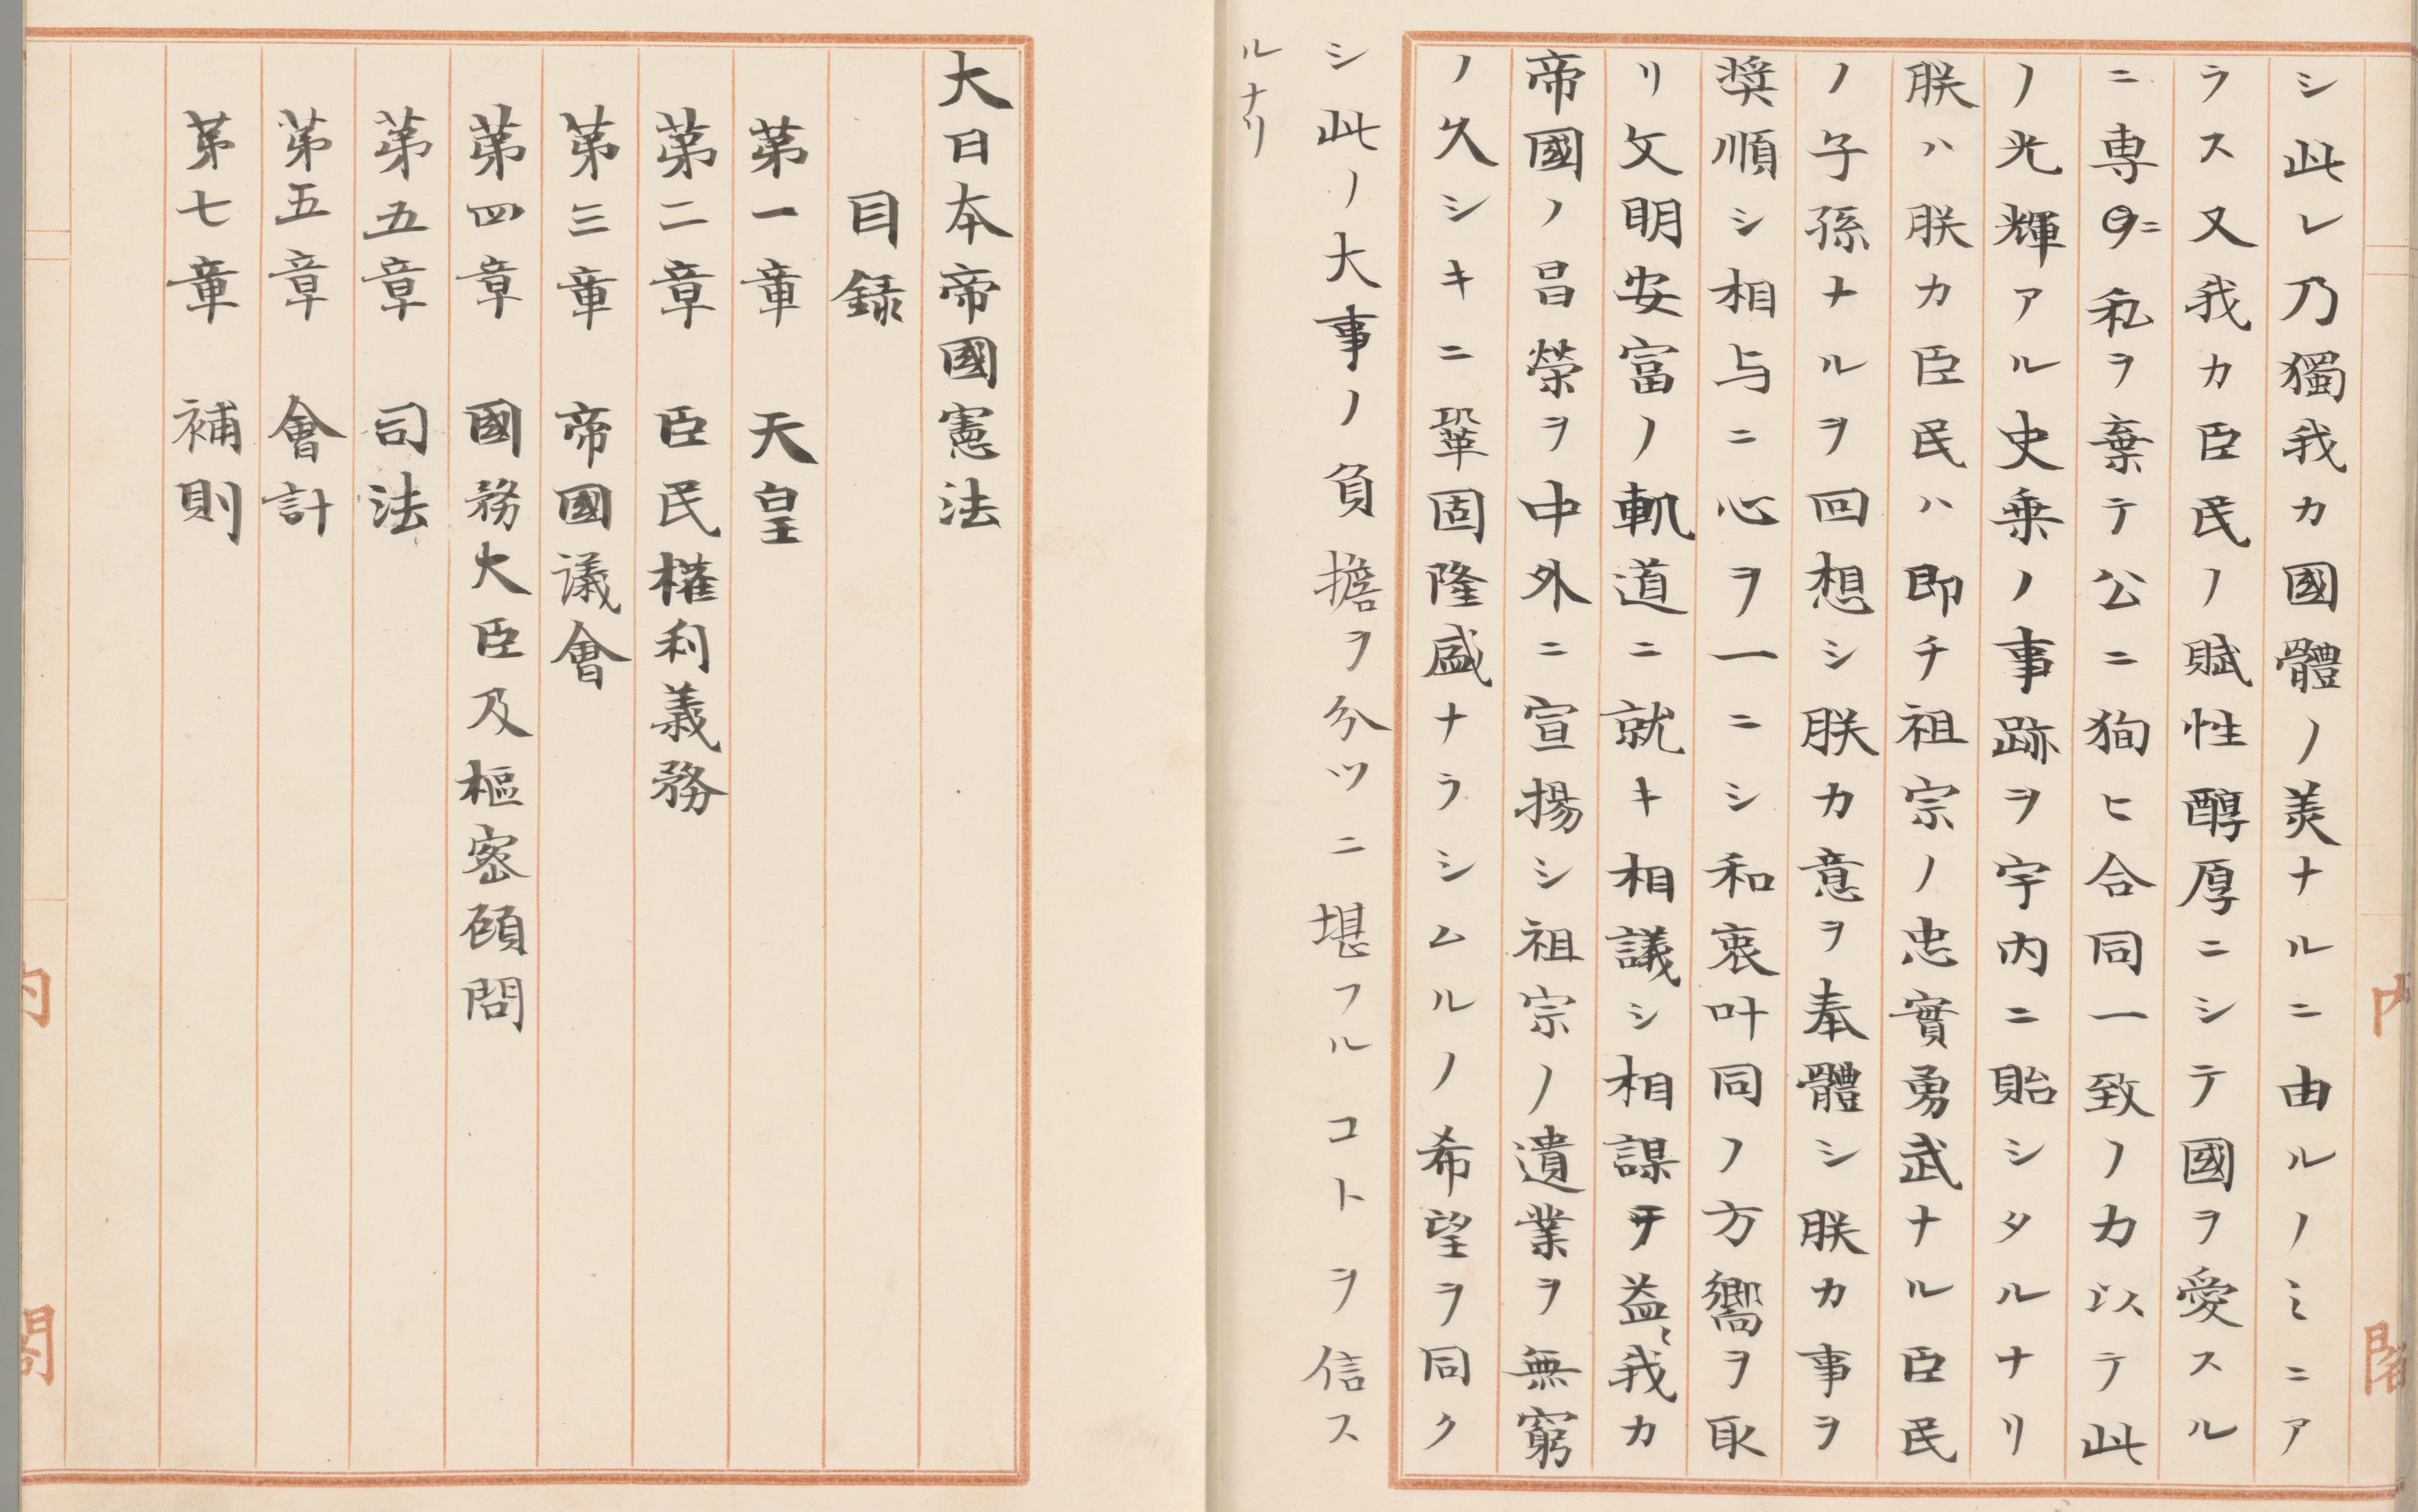 シ此レ乃獨我カ國體ノ美ナルニ由ルノミニア
ラス又我カ臣民ノ賦性醇厚ニシテ國ヲ愛スル
ニ専ニ私ヲ棄テ公ニ狥ヒ合同一致ノ力以テ此
ノ光輝アル史乗ノ事跡ヲ宇内ニ貽シタルナリ
朕ハ朕カ臣民ハ即チ祖宗ノ忠實勇武ナル臣民
ノ子孫ナルヲ回想シ朕カ意ヲ奉體シ朕カ事ヲ
奨順シ相与ニ心ヲ一ニシ和衷叶同ノ方嚮ヲ取
リ文明安富ノ軌道ニ就キ相議シ相謀テ益〻我カ
帝國ノ昌榮ヲ中外ニ宣揚シ祖宗ノ遺業ヲ無窮
ノ久シキニ鞏固隆盛ナラシムルノ希望ヲ同ク
シ此ノ大事ノ負擔ヲ分ツニ堪フルコトヲ信ス
ルナリ
内閣
大日本帝國憲法
目録
第一章 天皇
第二章 臣民權利義務
第三章 帝國議會
第四章 國務大臣及樞密顧問
第五章 司法
第五章 會計
第七章 補則
内閣